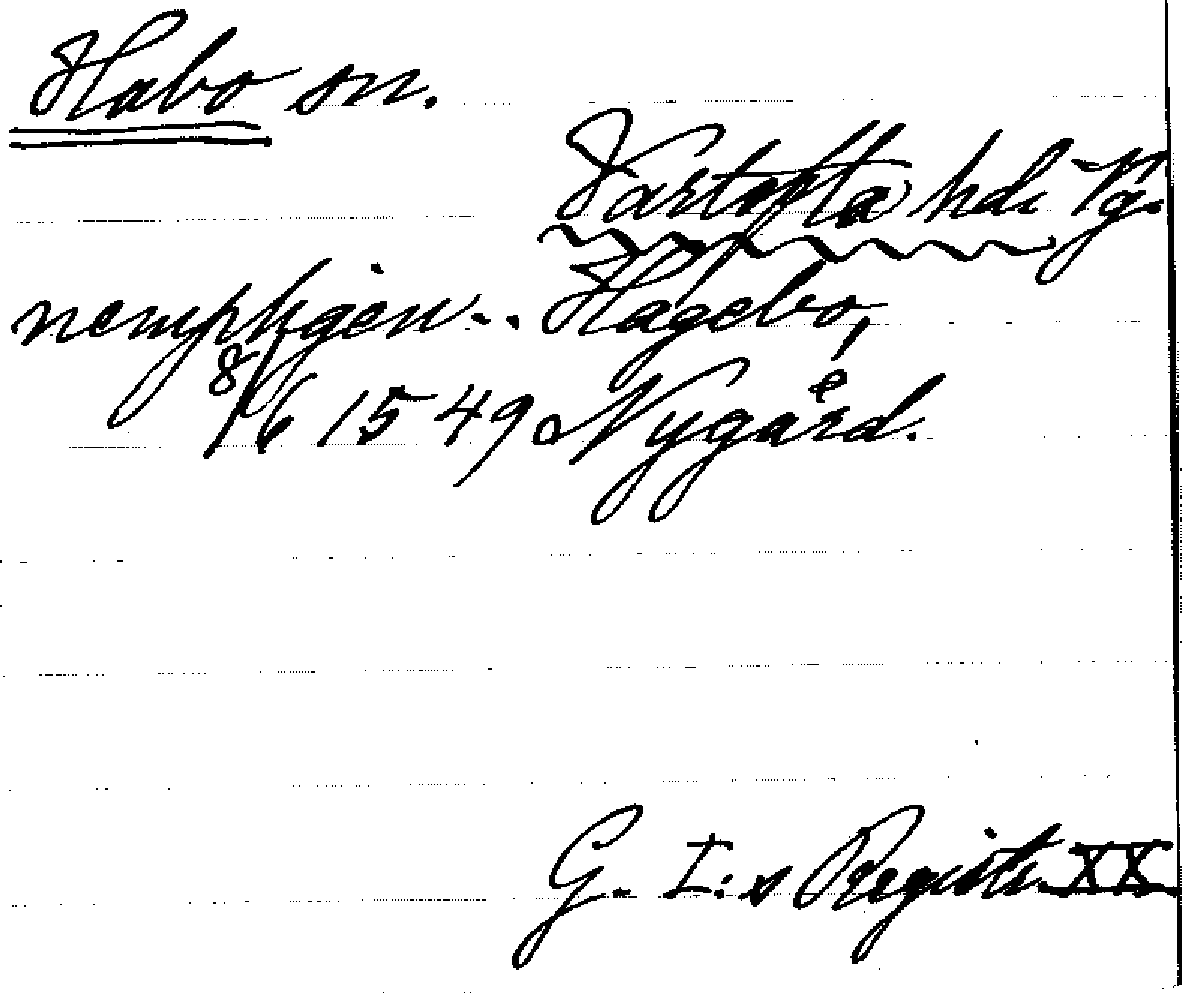 Habo sn.
Vartofta hd. Vg.
Hagebo,
8/6 1549 Nygård.
G. I:s Registr. XX